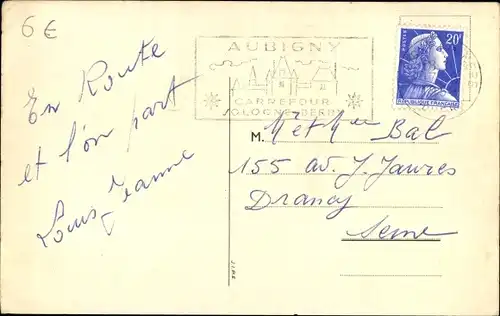 6 €
En Route
et l'on part
Jeanne
AUBIGNY
CARREFOUR
SOLOGNE-BERRY
POSTES 20F
REPUBLIQUE FRANÇAISE
M. M et Mme Bal
155 av. J. Jaures
Drancy
Seine